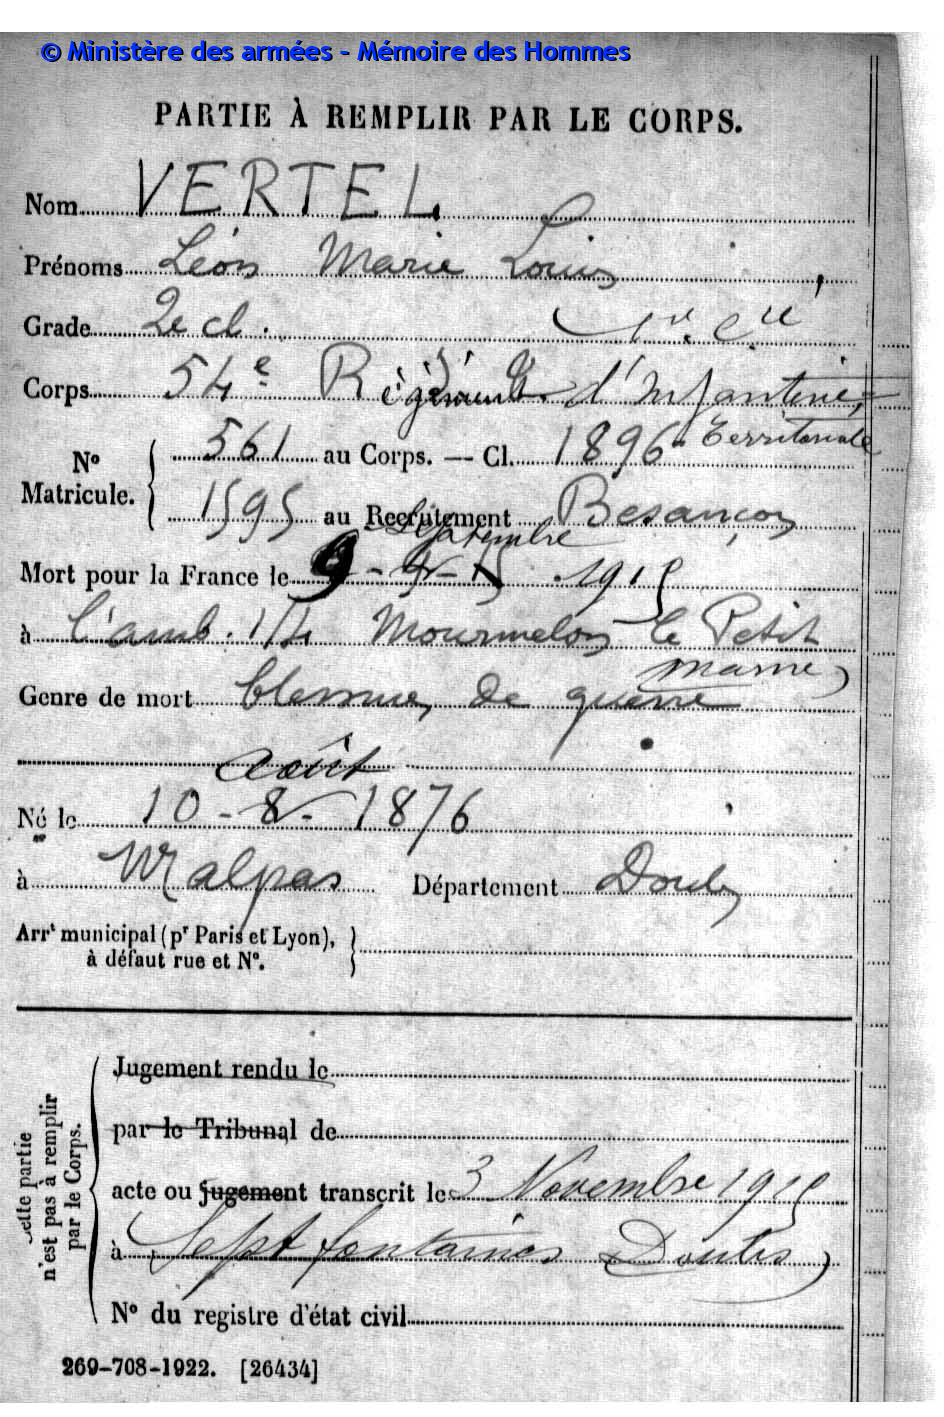 © Ministère des armées - Mémoire des Hommes
PARTIE À REMPLIR PAR LE CORPS.
Nom VERTEL
Prénoms Léon Marie Louis
Grade 2e cl.
Corps 54e Régiment d'Infanterie
Territoriale
No Matricule. 561 au Corps. — Cl. 1896
1595 au Recrutement Besançon
Septembre
Mort pour la France le 9 - 1915
à l'amb. 1/4 Mourmelon le Petit
Marne)
Genre de mort blessures de guerre
août
Né le 10 - 8 - 1876
à Malpas Département Doubs
Arrt municipal (pr Paris et Lyon),
à défaut rue et No.
Cette partie
n'est pas à remplir
par le Corps.
Jugement rendu le
par le Tribunal de
acte ou jugement transcrit le 3 Novembre 1915
à Septfontaines Doubs)
No du registre d'état civil
269-708-1922. [26434]